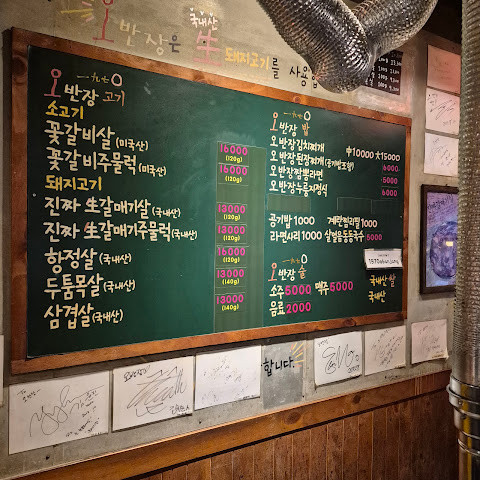 오반장은 국내산 生 돼지고기를 사용
오반장 고기
소고기
꽃갈비살(미국산) 16000 (120g)
꽃갈비주물럭(미국산) 16000 (120g)
돼지고기
진짜 生갈매기살(국내산) 13000 (120g)
진짜 生갈매기주물럭(국내산) 13000 (120g)
항정살(국내산) 15000 (120g)
두툼목살(국내산) 13500 (140g)
삼겹살(국내산) 13000 (140g)
오반장 밥
오반장김치찌개 中10000 大15000
오반장된장찌개(공기밥포함) 6000
오반장짬뽕라면 6000
오반장누룽지정식 5000
공기밥 1000 계란찜리필 1000
라면사리 1000 살얼음동동국수 5000
1970obanjang
오반장 술
소주 5000 맥주 5000
음료 2000
국내산 쌀
국내산
합니다.